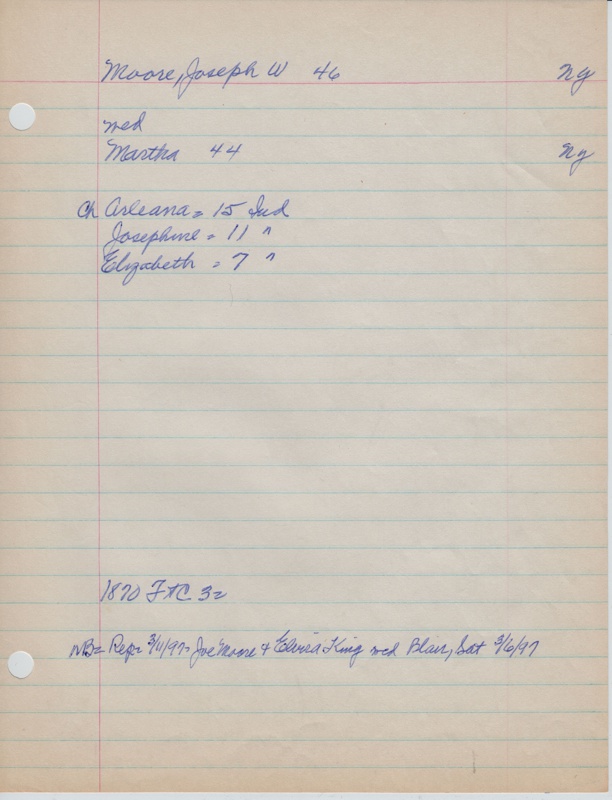 Moore, Joseph W 46 Ny
wed
Martha 44 Ny
Ch Arleana = 15 Ind
Josephine = 11 "
Elizabeth = 7 "
1870 3=
NB= Rep= 3/11/97= Joe Moore & Elvira King wed Blair, Sat 3/6/97